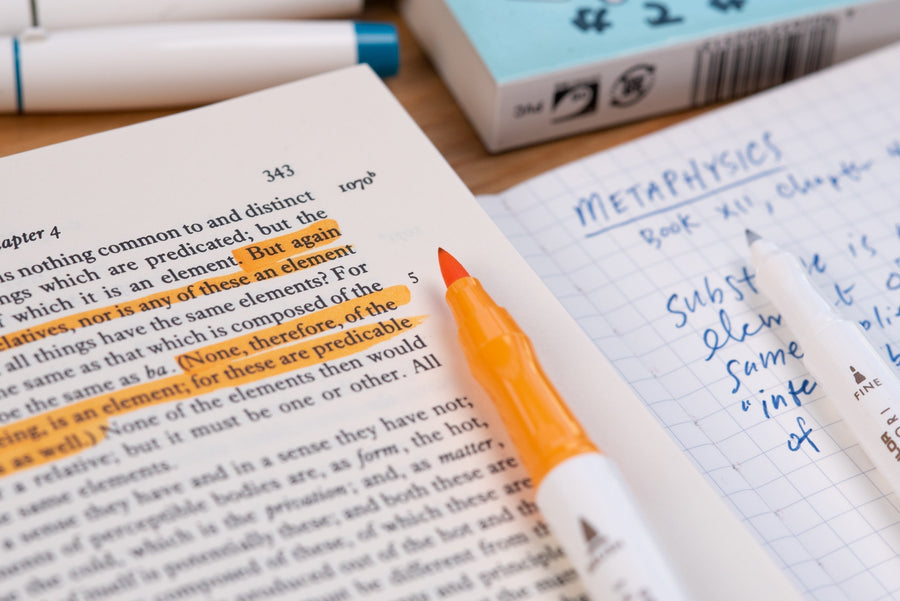 343
1070b
apter 4
is nothing common to and distinct
ngs which are predicated; but the
f which it is an element. But again
elatives, nor is any of these an element
all things have the same elements? For
5
he same as that which is composed of the
be the same as ba. (None, therefore, of the
eing, is an element; for these are predicable
s as well.) None of the elements then would
r a relative; but it must be one or other. All
same elements.
a sense they have and in a sense they have not;
of perceptible bodies are, as form, the hot,
the cold, which is the privation; and, as matter,
of itself is potentially these; and both these are
composed of these, of which these are
produced out of the hot and the
must be different from the
# 2 #
METAPHYSICS
Book XII, Chapter
subst e is
elem t
same
"inte
of
FINE